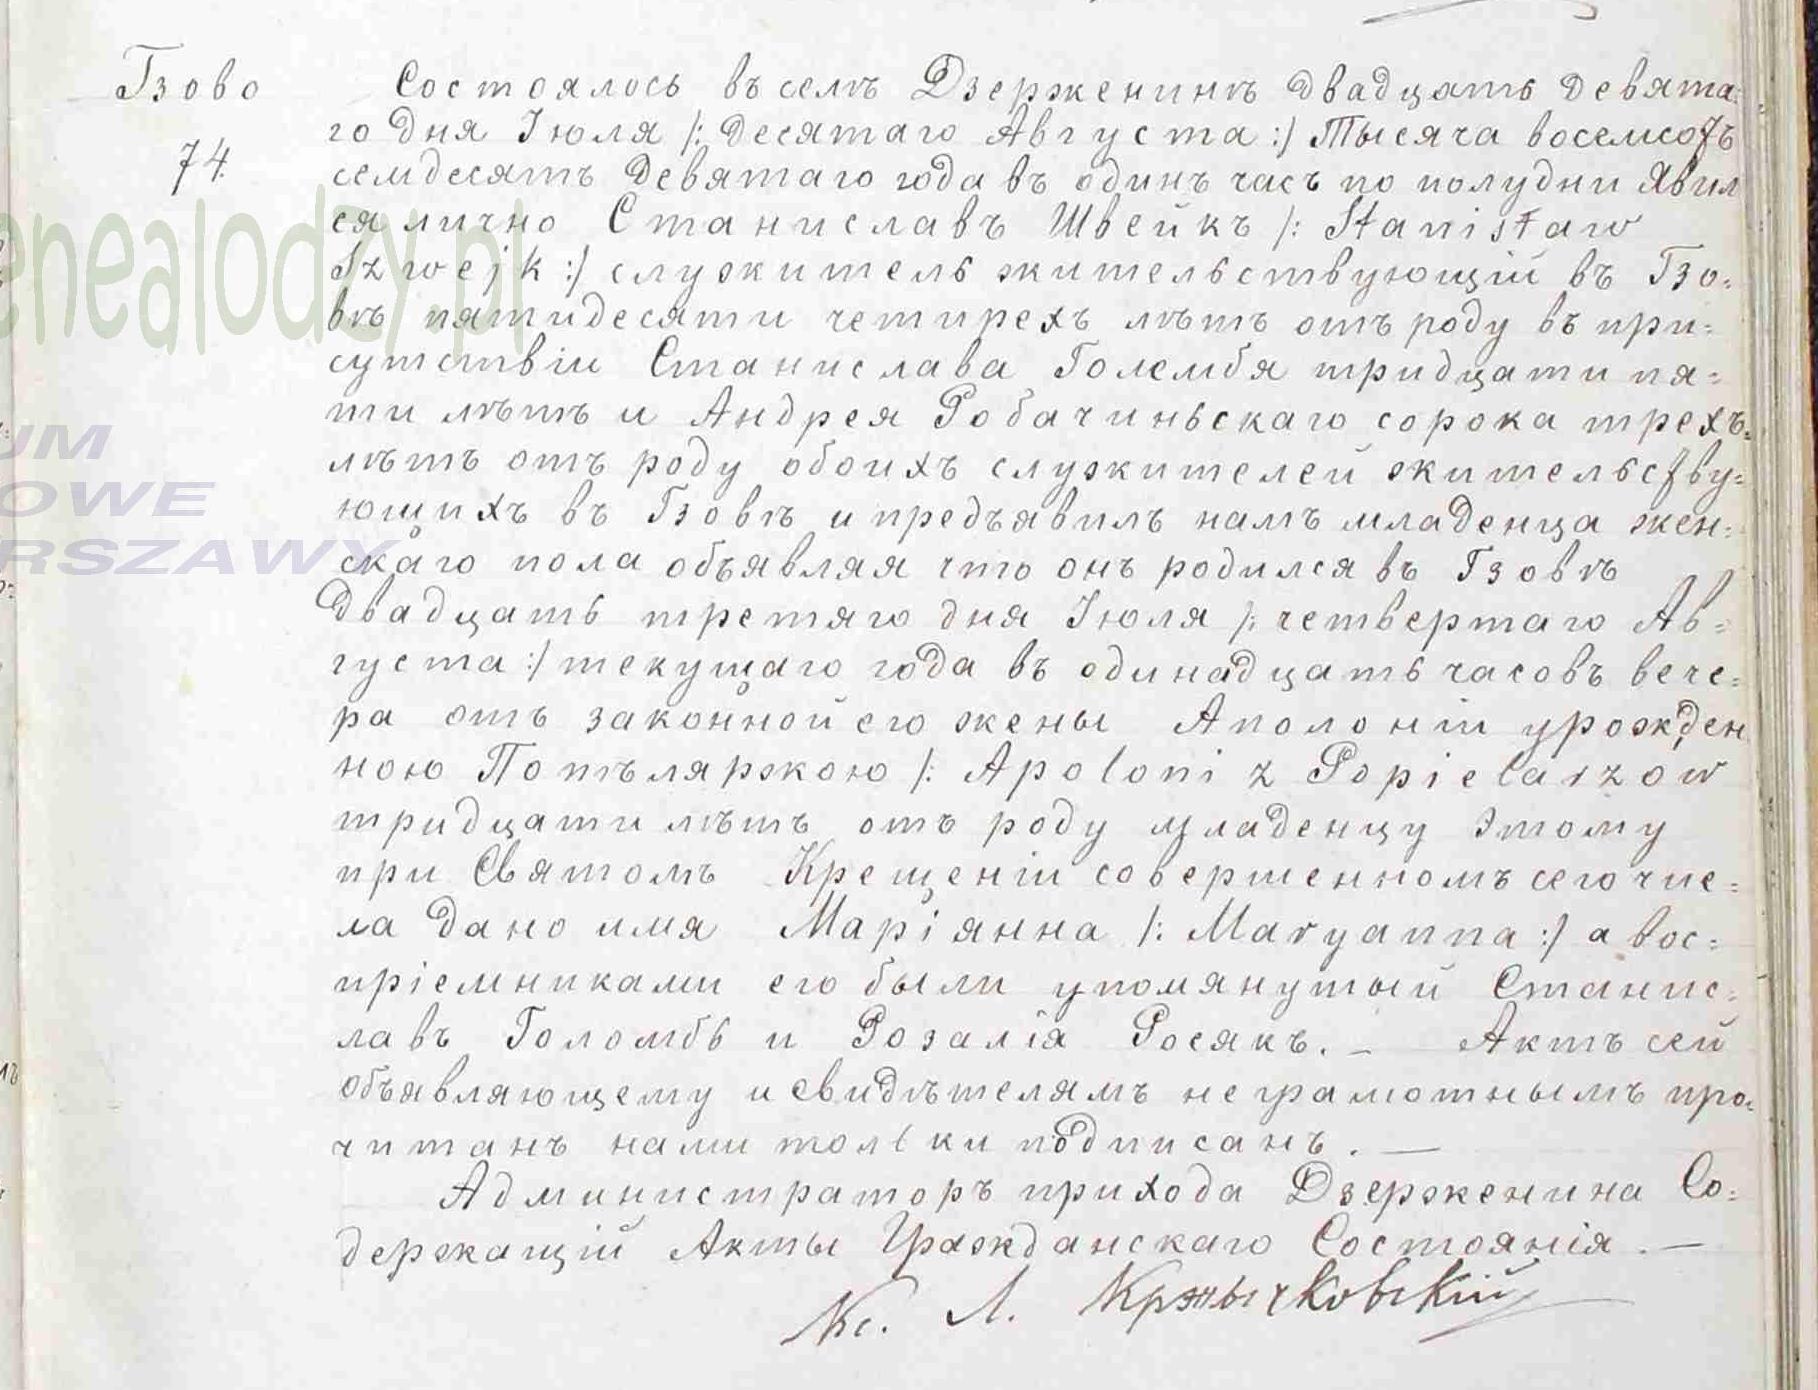 Гзово
74.
Состоялось въ селѣ Дзерженинѣ двадцать девята=
го дня Іюля /: десятаго Августа :/ тысяча восемсотъ
семдесятъ девятаго года въ одинъ часъ по полудни явил
ся лично Станиславъ Швейкъ /: Stanisław
Szwejk :/ служитель жительствующій въ Гзо=
вѣ пятидесяти четирехъ лѣтъ отъ роду въ при=
сутствіи Станислава Голембя тридцати пя=
ти лѣтъ и Андрея Робачиньскаго сорока трехъ
лѣтъ отъ роду обоихъ служителей жительству=
ющихъ въ Гзовѣ и предъявилъ намъ младенца жен=
скаго пола объявляя что онъ родился въ Гзовѣ
двадцать третяго дня Іюля /: четвертаго Ав=
густа :/ текущаго года въ одинадцать часовъ вече=
ра отъ законной его жены Аполоніи урожден
ною Попѣляржкою /: Apoloni z Popielarzow
тридцати лѣтъ отъ роду младенцу этому
при Святомъ Крещеніи совершенномъ сего чис=
ла дано имя Маріянна /: Maryanna :/ а вос=
пріемниками его были упомянутый Станис=
лавъ Голомбь и Розалія Росякъ. — Актъ сей
объявляющему и свидѣтелямъ неграмотнымъ про=
читанъ нами тольки подписанъ. —
Администраторъ прихода Дзерженина Со=
держащій Акты Гражданскаго Состоянія. —
Кс. Л. Кржычковскій
enealodzy.pl
UM
OWE
RSZAWY